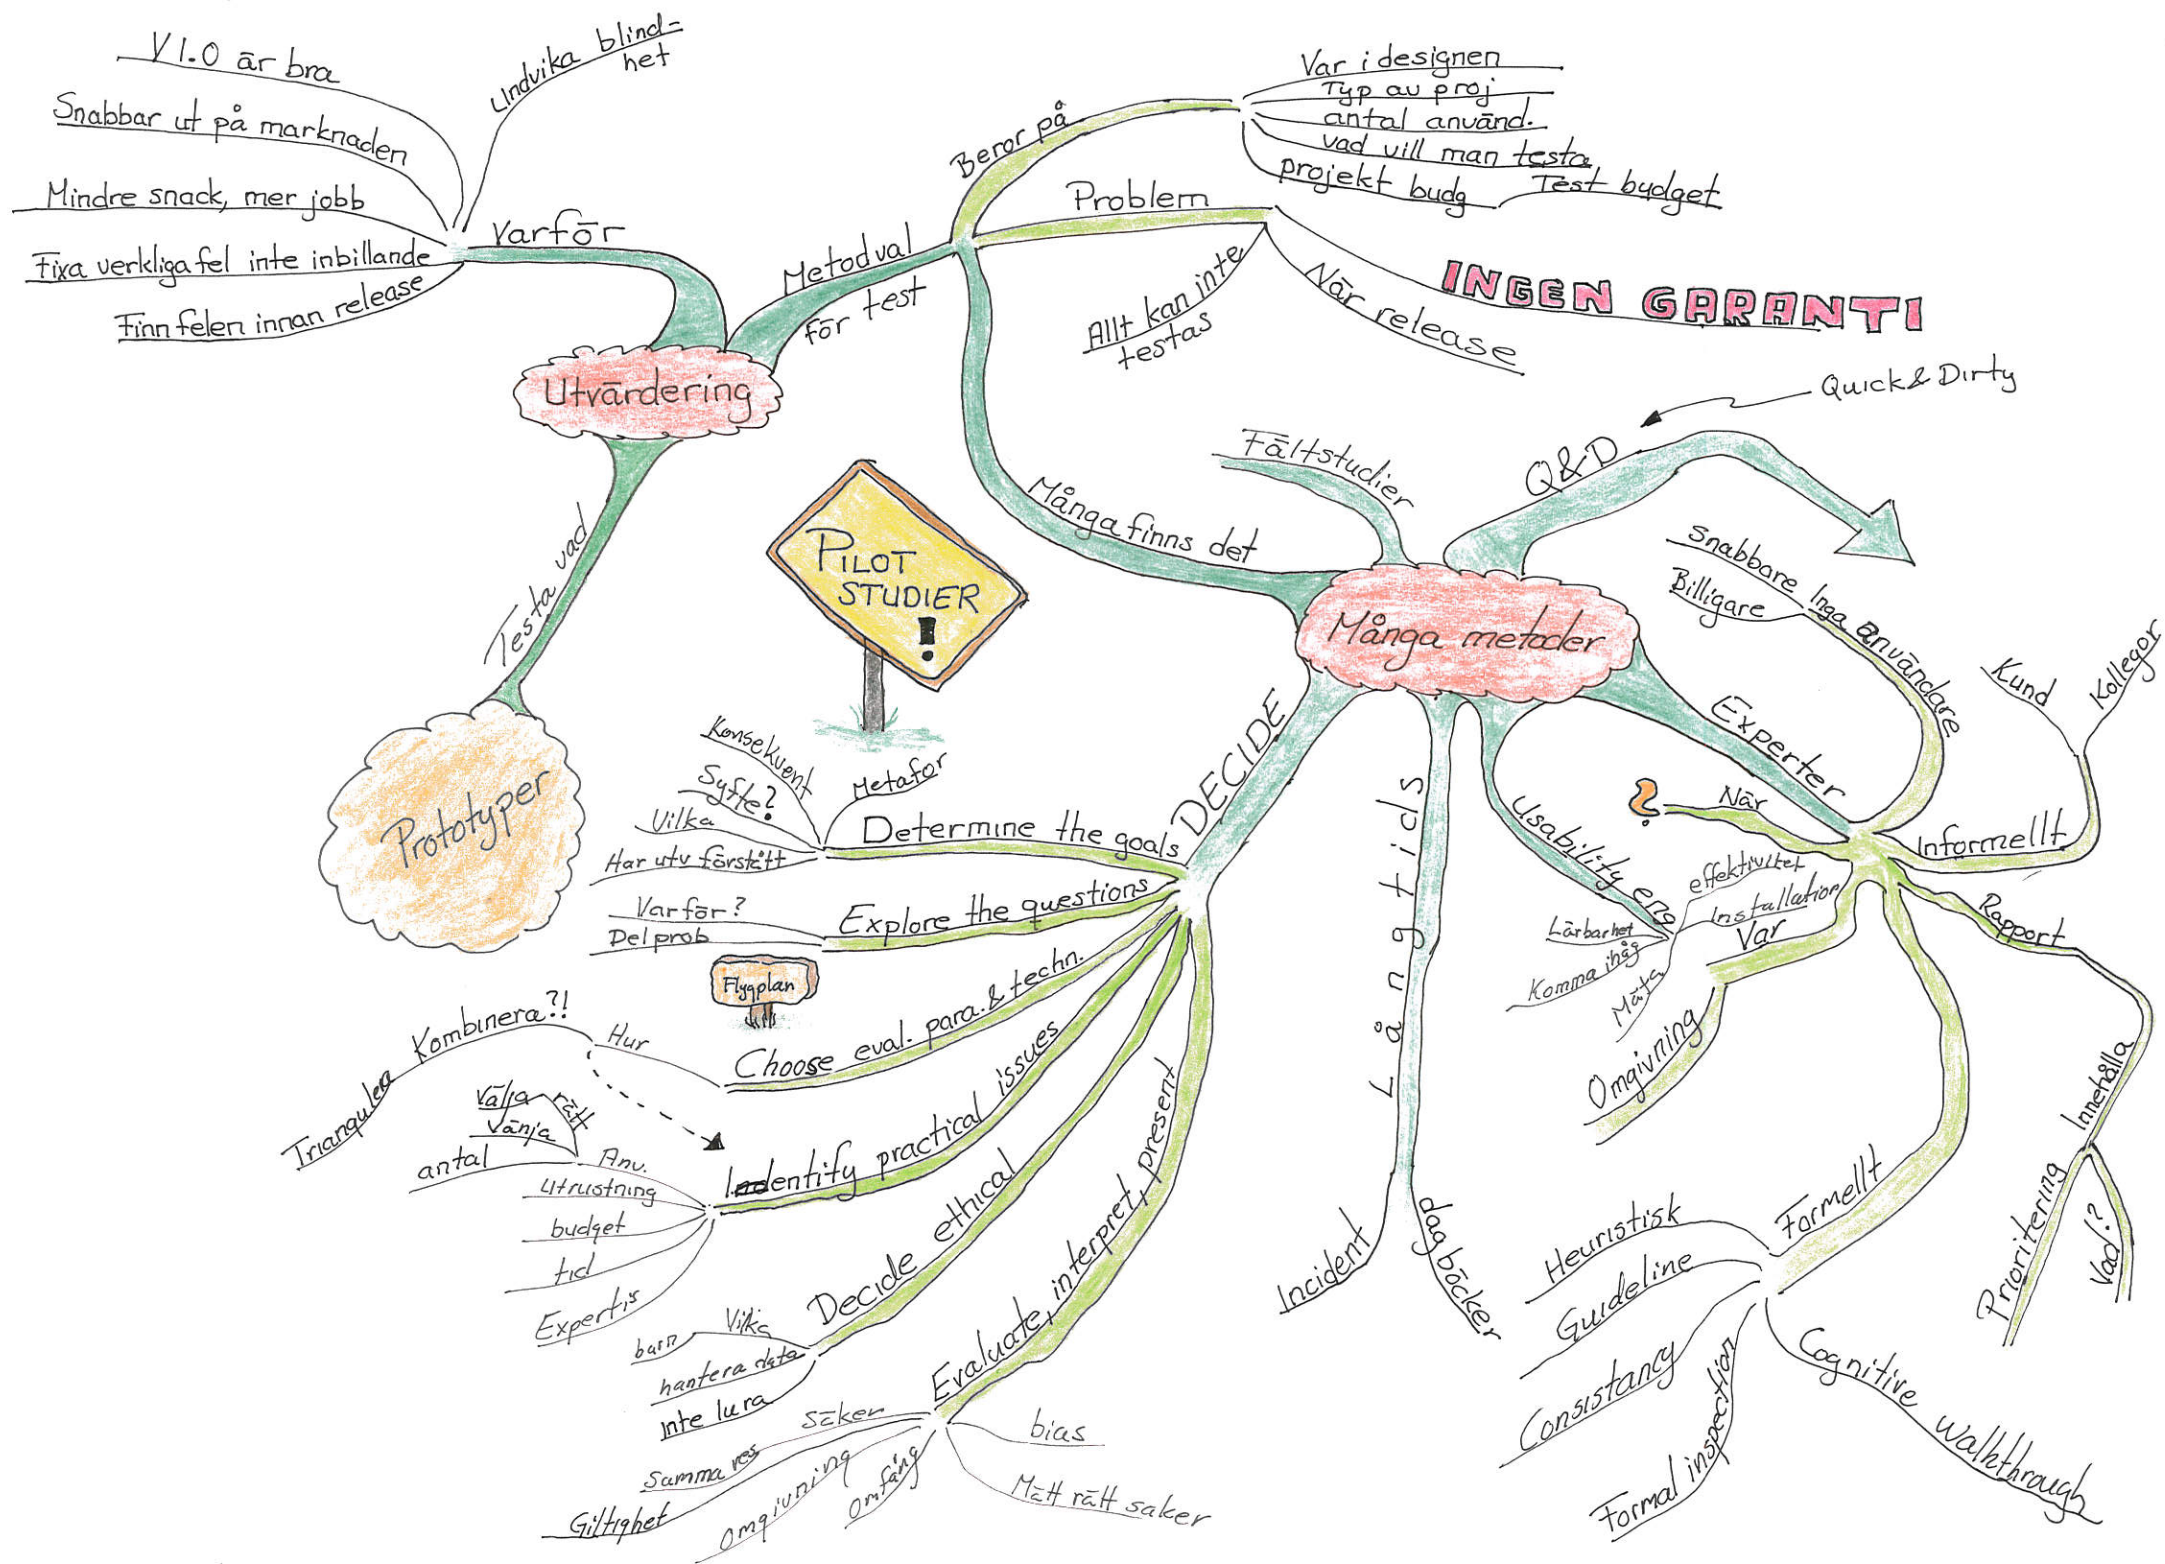 V1.0 är bra
Snabbar ut på marknaden
Mindre snack, mer jobb
Fixa verkliga fel inte inbillande
Finn felen innan release
Undvika blind-
het
Varför
Utvärdering
Metodval
för test
Beror på
Var i designen
Typ av proj
antal använd.
vad vill man testa
projekt budg
Test budget
Problem
Allt kan inte
testas
När release
INGEN GARANTI
Testa vad
Prototyper
PILOT
STUDIER
!
Många finns det
Många metoder
Fältstudier
Q&D
Quick & Dirty
Experter
Inga användare
Snabbare
Billigare
När
?
Informellt
Kund
Kollegor
Rapport
Innehålla
Prioritering
Vad?
Var
Omgivning
Formellt
Heuristisk
Guideline
Consistancy
Formal inspection
Cognitive walkthrough
Usability eng
effektivitet
Installation
Lärbarhet
Komma ihåg
Mäta
Långtids
Incident
dagböcker
DECIDE
Determine the goals
Konsekvent
Syfte?
Vilka
Har utv förstått
Metafor
Explore the questions
Varför?
Delprob
Flygplan
Choose eval. para. & techn.
Hur
Kombinera?!
Triangulera
Identify practical issues
Anv.
Välja rätt
Vänja
antal
Utrustning
budget
tid
Expertis
Decide ethical
Vilka
barn
hantera data
inte lura
Evaluate, interpret, present
Säker
samma res
Giltighet
omgivning
omfång
bias
Mätt rätt saker